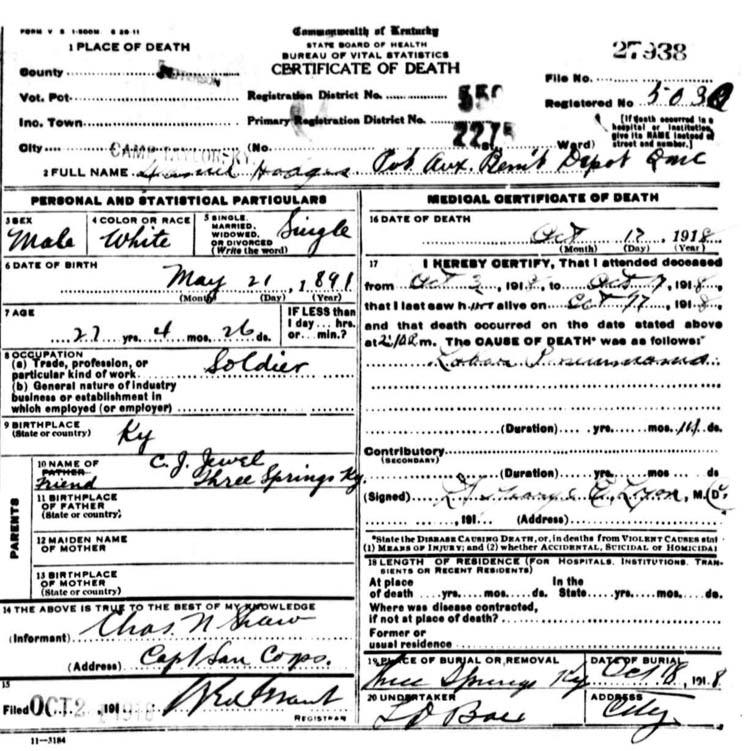 FORM V S 1-500M 6 20-11
Commonwealth of Kentucky
STATE BOARD OF HEALTH
BUREAU OF VITAL STATISTICS
CERTIFICATE OF DEATH
1 PLACE OF DEATH
27938
County
File No.
Vot. Pct.
Registration District No. 550
Registered No
Inc. Town
Primary Registration District No. 2275
[If death occurred in a
hospital or institution,
give its NAME instead of
street and number.]
City CAMP TAYLOR KY (No. St. Ward)
2 FULL NAME Pvt Aux. Remt Depot
PERSONAL AND STATISTICAL PARTICULARS
3 SEX
Male
4 COLOR OR RACE
White
5 SINGLE,
MARRIED,
WIDOWED,
OR DIVORCED
(Write the word)
Single
6 DATE OF BIRTH
May 21, 1891
(Month) (Day) (Year)
7 AGE
27 yrs. 4 mos. 26 ds.
IF LESS than
1 day... hrs.
or... min.?
8 OCCUPATION
(a) Trade, profession, or
particular kind of work Soldier
(b) General nature of industry
business or establishment in
which employed (or employer)
9 BIRTHPLACE
(State or country)
Ky
PARENTS
10 NAME OF
FATHER
Friend
C. J. Jewel
Three Springs Ky.
11 BIRTHPLACE
OF FATHER
(State or country)
12 MAIDEN NAME
OF MOTHER
13 BIRTHPLACE
OF MOTHER
(State or country)
14 THE ABOVE IS TRUE TO THE BEST OF MY KNOWLEDGE
(Informant) Chas. N Shaw
(Address) Capt San Corps.
15
Filed OCT 2 1918
REGISTRAR
11-3184
MEDICAL CERTIFICATE OF DEATH
16 DATE OF DEATH
Oct 17, 1918
(Month) (Day) (Year)
17 I HEREBY CERTIFY, That I attended deceased
from Oct 191 , to Oct 191 8,
that I last saw h im alive on Oct 17, 191 8,
and that death occurred on the date stated above
at m. The CAUSE OF DEATH* was as follows:
Lobar Pneumonia
(Duration) yrs. mos. ds.
Contributory
(SECONDARY)
(Duration) yrs. mos. ds
(Signed) Lyon, M.D.
, 191 (Address)
*State the DISEASE CAUSING DEATH, or, in deaths from VIOLENT CAUSES stat
(1) MEANS OF INJURY; and (2) whether ACCIDENTAL, SUICIDAL or HOMICIDAL
18 LENGTH OF RESIDENCE (FOR HOSPITALS, INSTITUTIONS, TRAN-
SIENTS OR RECENT RESIDENTS)
At place
of death yrs. mos. ds.
In the
State yrs. mos. ds.
Where was disease contracted,
if not at place of death?
Former or
usual residence
19 PLACE OF BURIAL OR REMOVAL
Three Springs Ky
DATE OF BURIAL
Oct. 18, 191 8
20 UNDERTAKER
L D Bax
ADDRESS
City